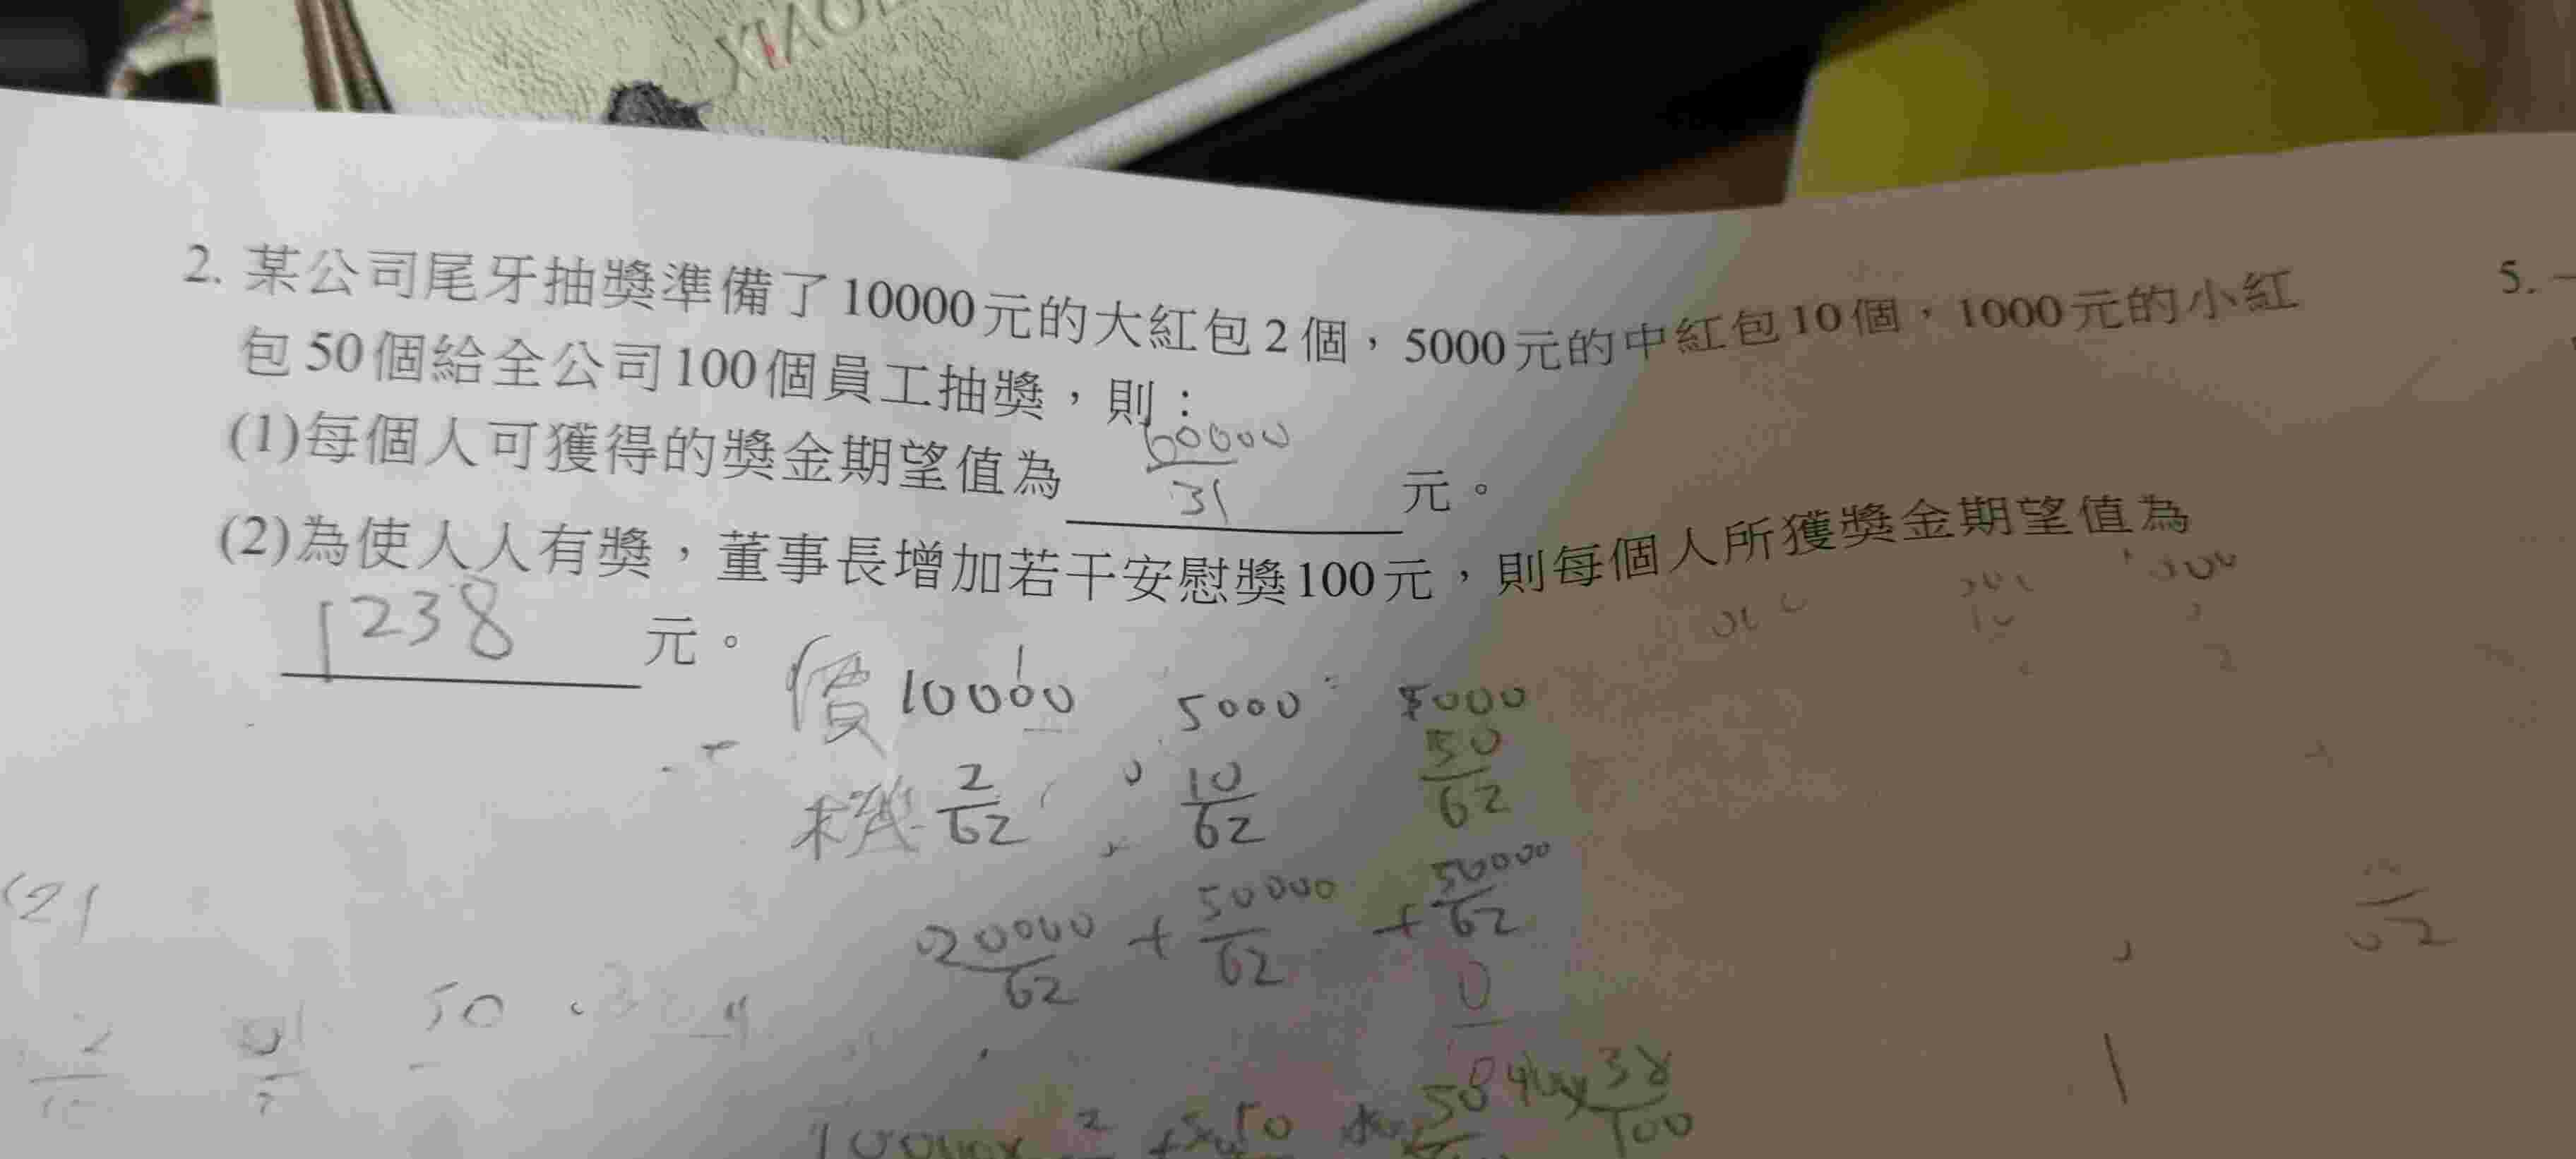 XIAO
2. 某公司尾牙抽獎準備了10000元的大紅包2個，5000元的中紅包10個，1000元的小紅
包50個給全公司100個員工抽獎，則：
(1)每個人可獲得的獎金期望值為 60000/31 元。
(2)為使人人有獎，董事長增加若干安慰獎100元，則每個人所獲獎金期望值為
1238 元。
5.
價 10000 5000 1000
機 2/62 , 10/62 50/62
20000/62 + 50000/62 + 50000/62
(2)
50
38/100